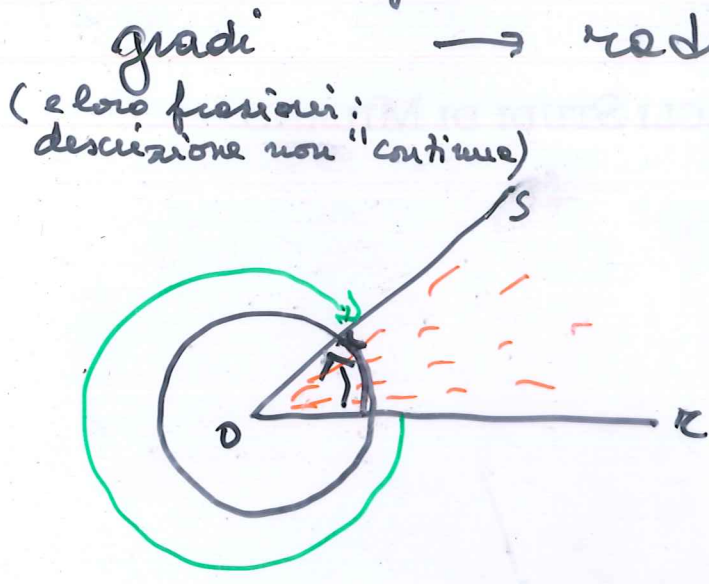 gradi → rad
(e loro frazioni:
descrizione non "continua)
S
O
r